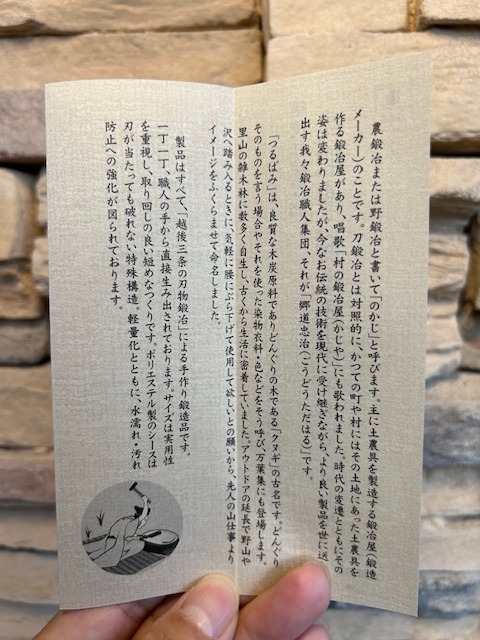 農鍛冶または野鍛冶と書いて「のかじ」と呼びます。主に土農具を製造する鍛冶屋(鍛造
メーカー)のことです。刀鍛冶とは対照的に、かつての町や村にはその土地にあった土農具を
作る鍛冶屋があり、唱歌・村の鍛冶屋(かじや)にも歌われました。時代の変遷とともにその
姿は変わりましたが、今なお伝統の技術を現代に受け継ぎながら、より良い製品を世に送
出す我々鍛冶職人集団、それが「郷道忠治(こうどうただはる)」です。
「つるばみ」は、良質な木炭原料でありどんぐりの木である「クヌギ」の古名です。どんぐり
そのものを言う場合やそれを使った染物衣料・色などをそう呼び、万葉集にも登場します。
里山の雑木林に数多く自生し、古くから生活に密着していました。アウトドアの延長で野山や
沢へ踏み入るときに、気軽に腰にぶら下げて使用して欲しいとの願いから、先人の山仕事より
イメージをふくらませて命名しました。
製品はすべて、「越後三条の刃物鍛冶」による手作り鍛造品です。
一丁一丁、職人の手から直接生み出されております。サイズは実用性
を重視し、取り回しの良い短めなつくりです。ポリエステル製のシースは
刃が当たっても破れない特殊構造。軽量化とともに、水濡れ・汚れ
防止への強化が図られております。